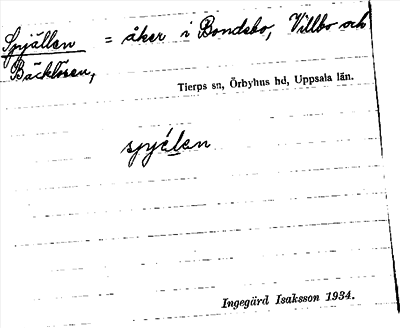 Spjällen = åker i Bondebo, Villbo och
Bäcklösen,
Tierps sn, Örbyhus hd, Uppsala län.
spjälen
Ingegärd Isaksson 1934.